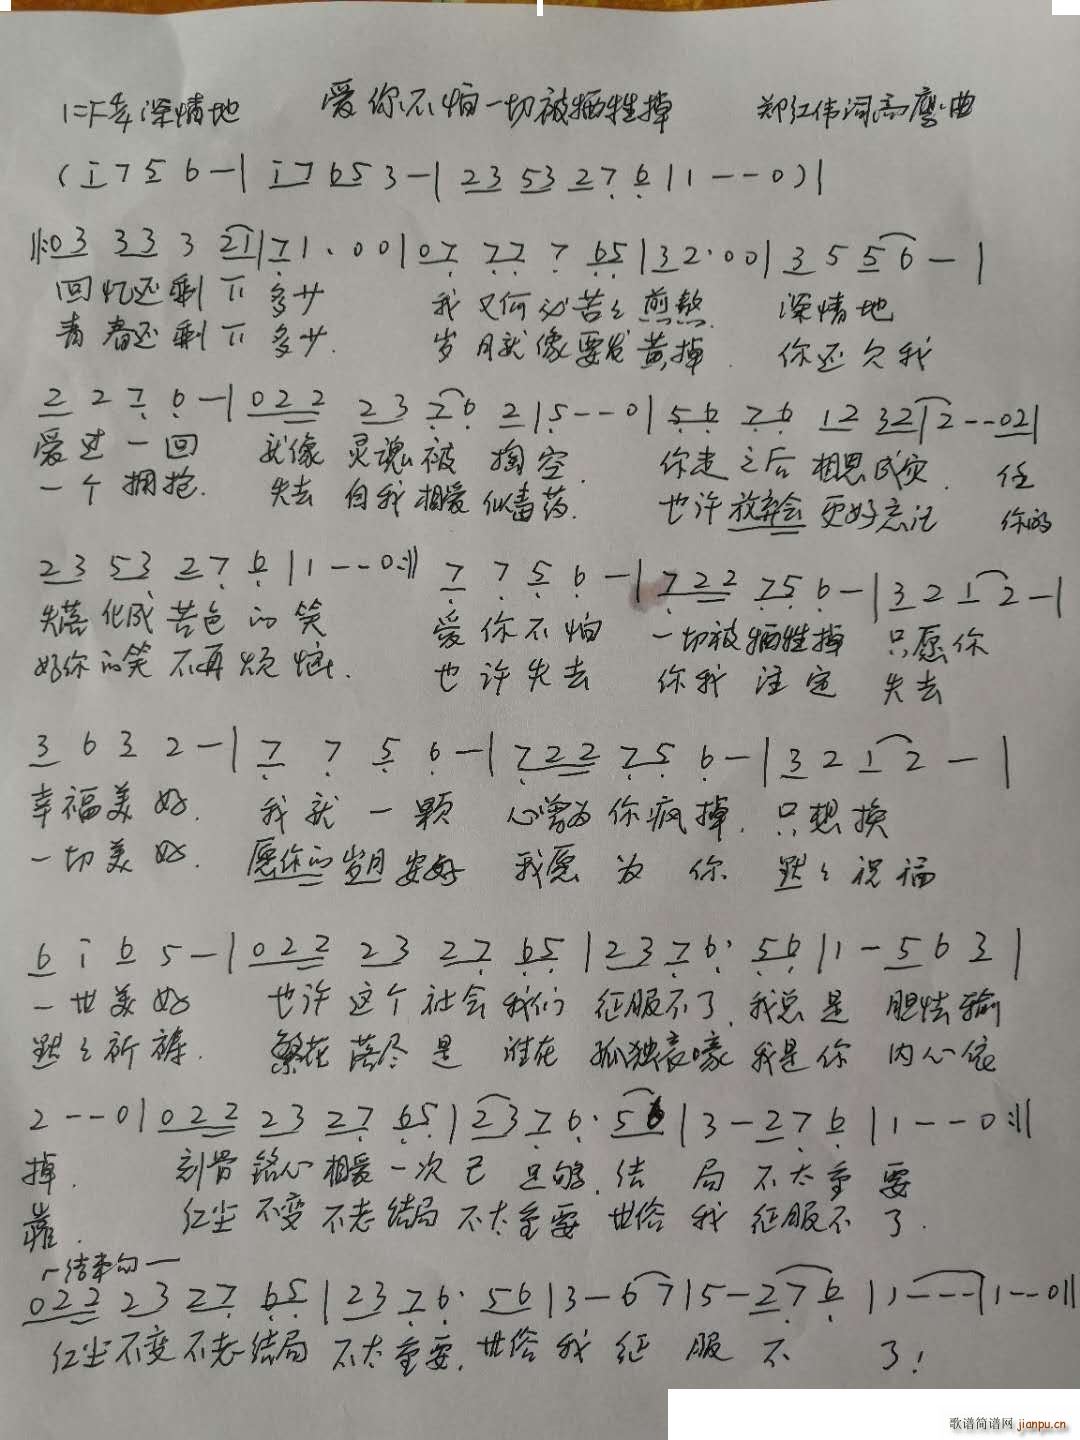 1=F 4/4 深情地 爱你不怕一切被牺牲掉 郑红伟词高鹰曲
(i 7 5 6 - | i 7 6 5 3 - | 2 3 5 3 2 7 6 | 1 - - 0) |
‖: 0 3 3 3 3 2 1 | 7 1 · 0 0 | 0 7 7 7 7 6 5 | 3 2 · 0 0 | 3 5 5 6 - |
回忆还剩下多少 我又何必苦苦煎熬 深情地
青春还剩下多少. 岁月就像要发黄掉. 你还欠我
2 2 7 6 - | 0 2 2 2 3 7 6 2 | 5 - - 0 | 5 6 7 6 1 2 3 2 1 | 2 - - 0 2 |
爱过一回 就像灵魂被掏空. 你走之后相思成灾. 任
一个拥抱. 失去自我相爱似毒药. 也许放弃会更好忘记 你的
2 3 5 3 2 7 6 | 1 - - 0 :‖ 7 7 5 6 - | 7 2 2 7 5 6 - | 3 2 1 2 - |
失落化成苦色的笑 爱你不怕 一切被牺牲掉 只愿你
好你的笑不再烦恼. 也许失去 你我注定 失去
3 6 3 2 - | 7 7 5 6 - | 7 2 2 7 5 6 - | 3 2 1 2 - |
幸福美好. 我就一颗 心曾为你疯掉. 只想换
一切美好. 愿你的岁月安好 我愿为你 默默祝福
6 i 6 5 - | 0 2 2 2 3 2 7 6 5 | 2 3 7 6 · 5 6 | 1 - 5 6 3 |
一世美好 也许这个社会我们 征服不了. 我总是 胆怯输
默默祈祷. 繁花落尽是谁在 孤独哀嚎 我是你 内心依
2 - - 0 | 0 2 2 2 3 2 7 6 5 | 2 3 7 6 · 5 6 | 3 - 2 7 6 | 1 - - 0 :‖
掉. 刻骨铭心相爱一次已 足够. 结 局 不太重要
靠. 红尘不变不老结局不太重要 世俗我征服不了.
结束句
0 2 2 2 3 2 7 6 5 | 2 3 7 6 · 5 6 | 3 - 6 7 | 5 - 2 7 6 | 1 - - - | 1 - - 0 ‖
红尘不变不老结局 不太重要. 世俗我征服不了!
歌谱简谱网 jianpu.cn